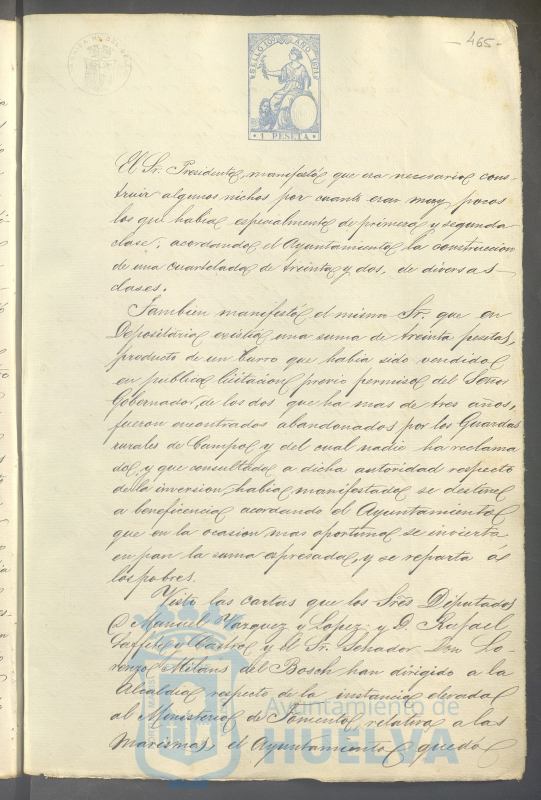 465
SELLO 10º AÑO 1871
1 PESETA
El Sr. Presidente, manifestó que era necesario cons-
truir algunos nichos por cuanto eran muy pocos
los que había especialmente de primera y segunda
clase; acordando el Ayuntamiento la construccion
de una cuartelada de treinta y dos, de diversas
clases.
Tambien manifestó el mismo Sr. que en
Depositaria existia una suma de treinta pesetas,
producto de un burro que habia sido vendido
en publica licitacion previo permiso del Señor
Gobernador, de los dos que ha mas de tres años,
fueron encontrados abandonados por los Guardas
rurales de Campo y del cual nadie ha reclama
do, y que consultada a dicha autoridad respecto
de la inversion, habia manifestado se destine
a beneficencia acordando el Ayuntamiento
que en la ocasion mas oportuna se invierta
en pan la suma espresada, y se reparta á
los pobres.
Visto las cartas que los Sres Diputados
D Manuel Vazquez y Lopez y D Rafael
y Castro y el Sr. Senador Don Lo-
renzo Milans del Bosch han dirigido a la
Alcaldia respecto de la instancia elevada
al Ministerio de Fomento, relativa a las
Marismas, el Ayuntamiento quedó
Ayuntamiento de
HUELVA